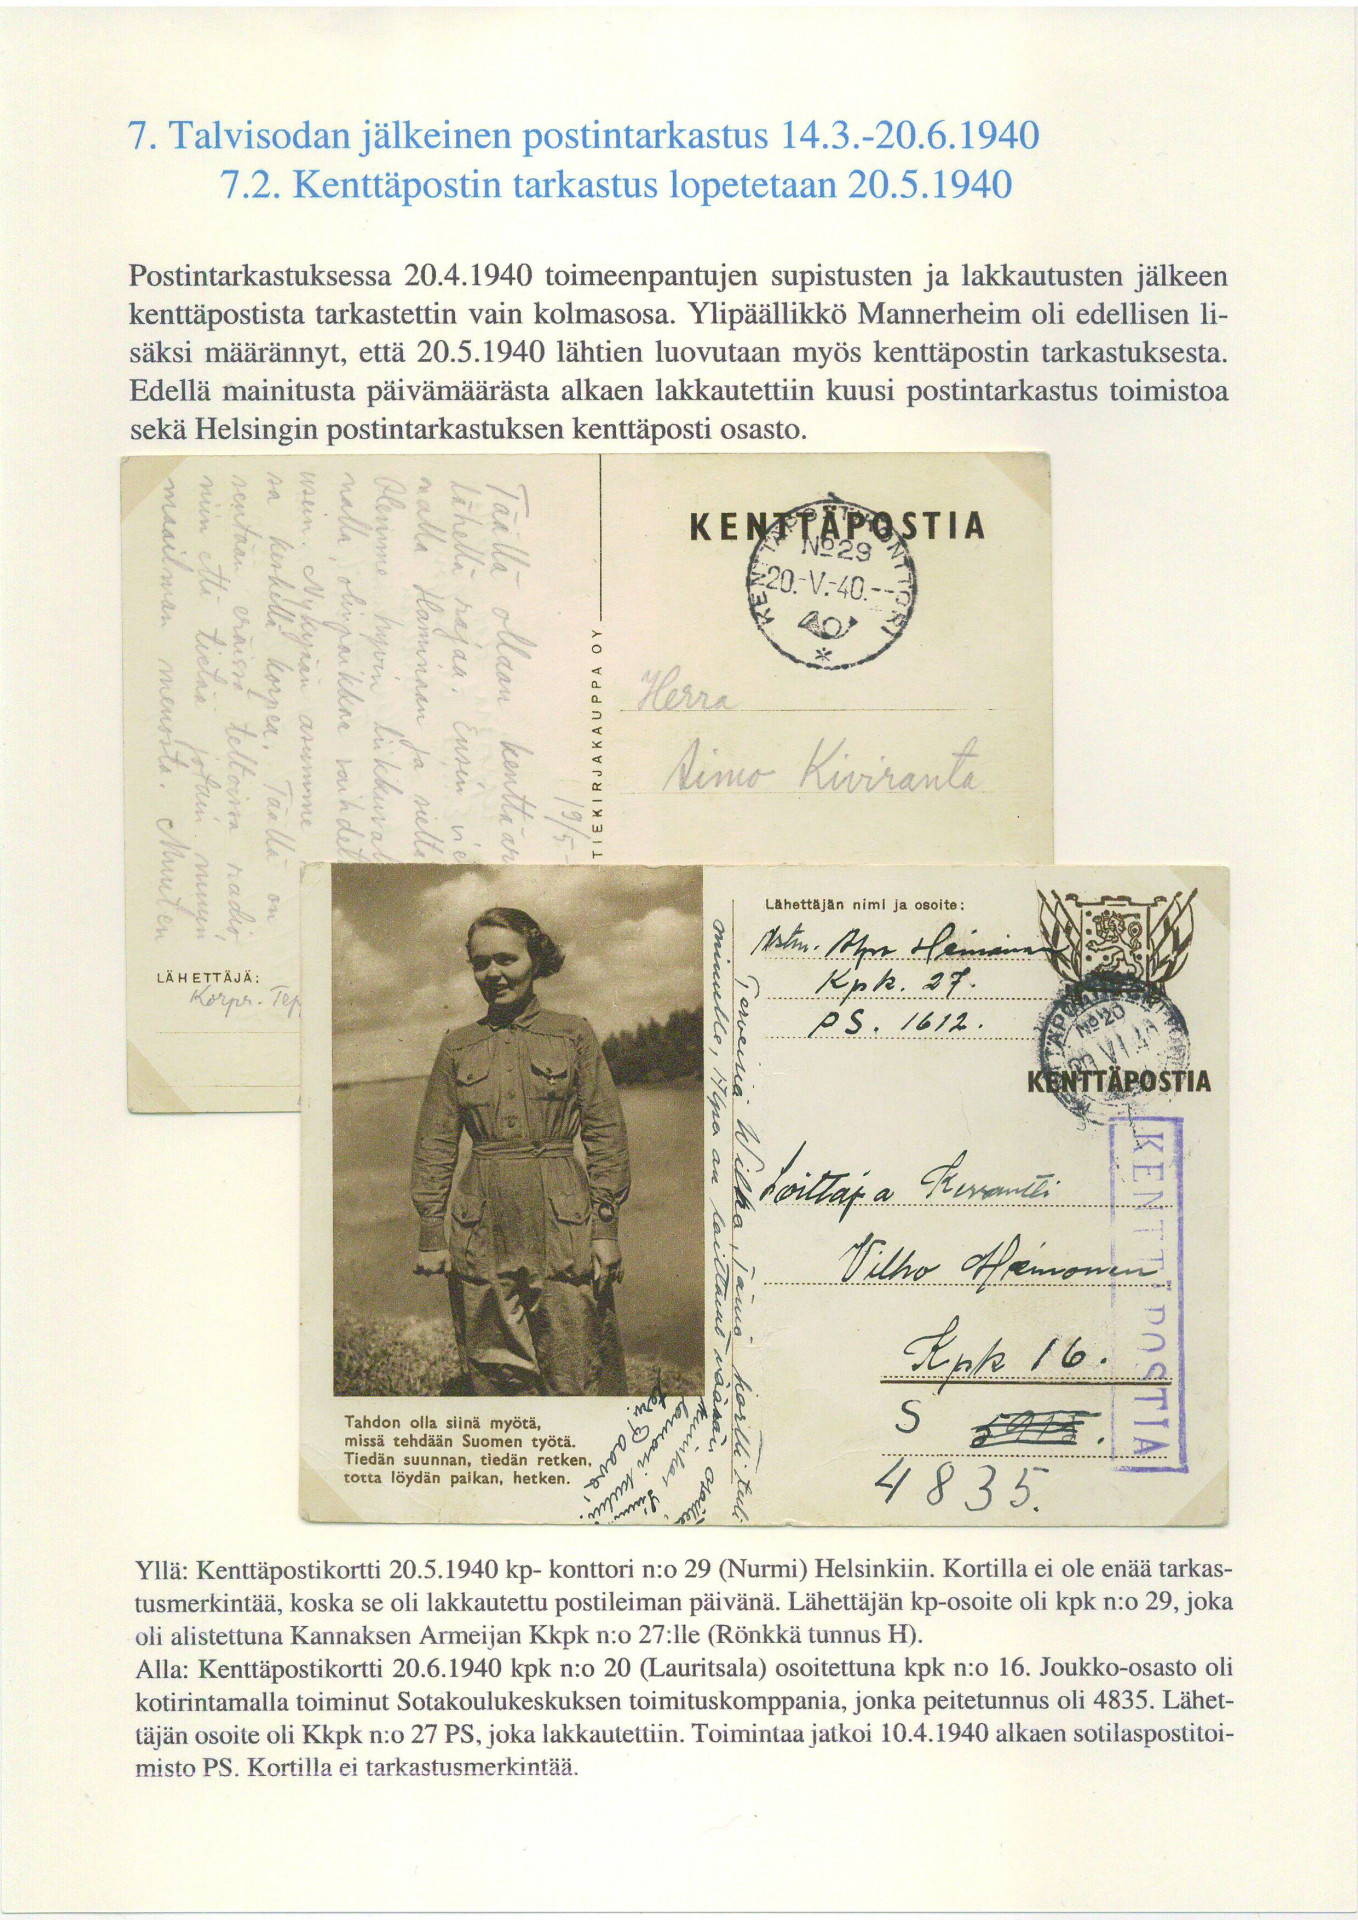 7. Talvisodan jälkeinen postintarkastus 14.3.-20.6.1940
7.2. Kenttäpostin tarkastus lopetetaan 20.5.1940
Postintarkastuksessa 20.4.1940 toimeenpantujen supistusten ja lakkautusten jälkeen
kenttäpostista tarkastettin vain kolmasosa. Ylipäällikkö Mannerheim oli edellisen li-
säksi määrännyt, että 20.5.1940 lähtien luovutaan myös kenttäpostin tarkastuksesta.
Edellä mainitusta päivämäärästa alkaen lakkautettiin kuusi postintarkastus toimistoa
sekä Helsingin postintarkastuksen kenttäposti osasto.
Täällä ollaan kenttäar
lähellä rajaa. Ensin vie
nalla Haminaan ja sieltä
Olemme hyvin liikkuval
nalla, olinpaikkaa vaihdet
usein. Nykyään asumme
sa keskellä korpea. Täällä on
sentään eräissä teltoissa radio,
niin että tietää jotain muun
maailman menosta. Muuten
19/5-
LÄHETTÄJÄ:
Korpr. Tep
TIEKIRJAKAUPPA OY
KENTTÄPOSTIA
KENTTÄPOSTIKONTTORI
No 29
20.-V.-40.--
Herra
Aimo Kiviranta
Lähettäjän nimi ja osoite:
Kpk. 27.
PS. 1612.
No 20
KENTTÄPOSTIA
KENTTÄPOSTIA
Vilho Heinonen
Kpk 16.
S
4835.
Terveisiä Wilho, Tämä kortti tuli
minulle, Alpo on laittanut väärän osoitteen
Paavo
Tahdon olla siinä myötä,
missä tehdään Suomen työtä.
Tiedän suunnan, tiedän retken,
totta löydän paikan, hetken.
Yllä: Kenttäpostikortti 20.5.1940 kp- konttori n:o 29 (Nurmi) Helsinkiin. Kortilla ei ole enää tarkas-
tusmerkintää, koska se oli lakkautettu postileiman päivänä. Lähettäjän kp-osoite oli kpk n:o 29, joka
oli alistettuna Kannaksen Armeijan Kkpk n:o 27:lle (Rönkkä tunnus H).
Alla: Kenttäpostikortti 20.6.1940 kpk n:o 20 (Lauritsala) osoitettuna kpk n:o 16. Joukko-osasto oli
kotirintamalla toiminut Sotakoulukeskuksen toimituskomppania, jonka peitetunnus oli 4835. Lähet-
täjän osoite oli Kkpk n:o 27 PS, joka lakkautettiin. Toimintaa jatkoi 10.4.1940 alkaen sotilaspostitoi-
misto PS. Kortilla ei tarkastusmerkintää.